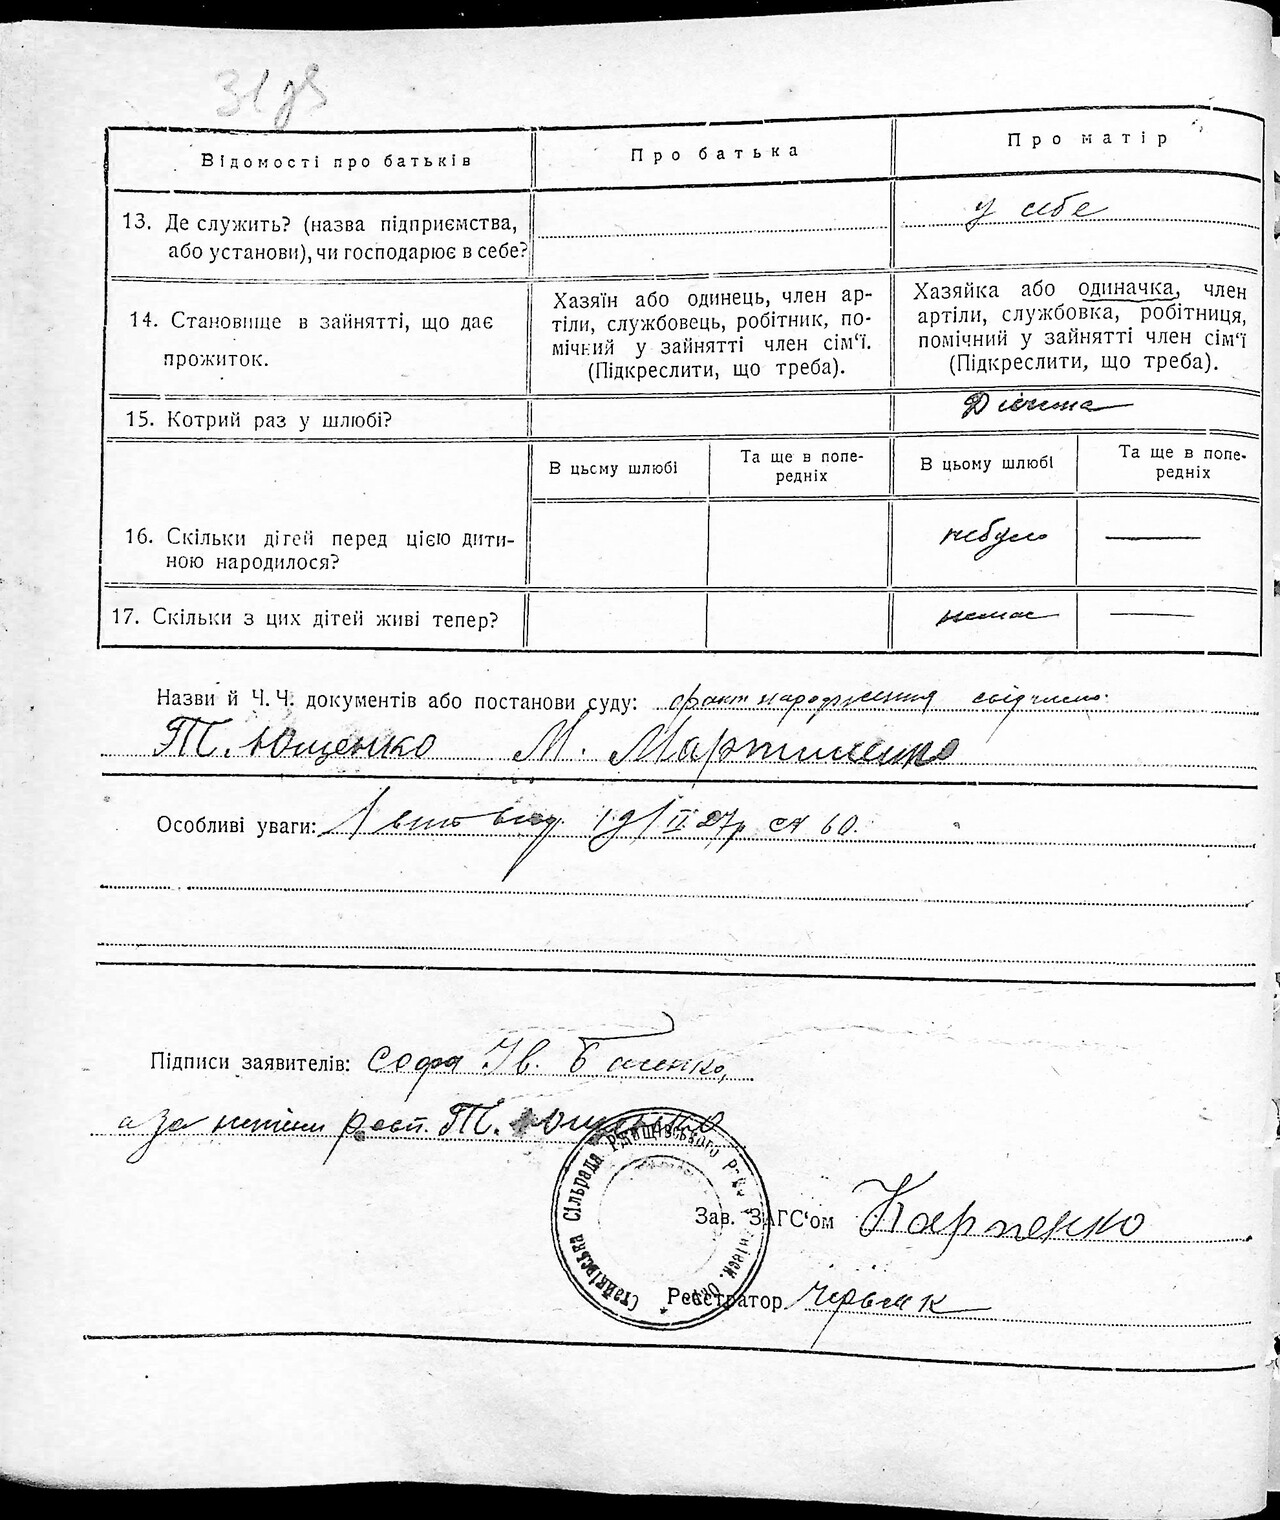 31 зв
Відомості про батьків
Про батька
Про матір
13. Де служить? (назва підприємства,
або установи), чи господарює в себе?
у себе
14. Становище в зайнятті, що дає
прожиток.
Хазяїн або одинець, член ар-
тіли, службовець, робітник, по-
мічний у зайнятті член сім'ї.
(Підкреслити, що треба).
Хазяйка або одиначка, член
артіли, службовка, робітниця,
помічний у зайнятті член сім'ї
(Підкреслити, що треба).
15. Котрий раз у шлюбі?
Дівчина
В цьому шлюбі
Та ще в попе-
редніх
В цьому шлюбі
Та ще в попе-
редніх
16. Скільки дітей перед цією дити-
ною народилося?
небуло —
17. Скільки з цих дітей живі тепер?
немає —
Назви й Ч. Ч. документів або постанови суду: факт народження свідчимо:
Т. Ющенко М. Мартиненко
Особливі уваги: 27р ст 60.
Підписи заявителів: Софя Ів.
а за неї розп. Т. Ющенко
Стайківська Сільрада Ржищівського
Зав. ЗАГС'ом Карпенко
Реєстратор